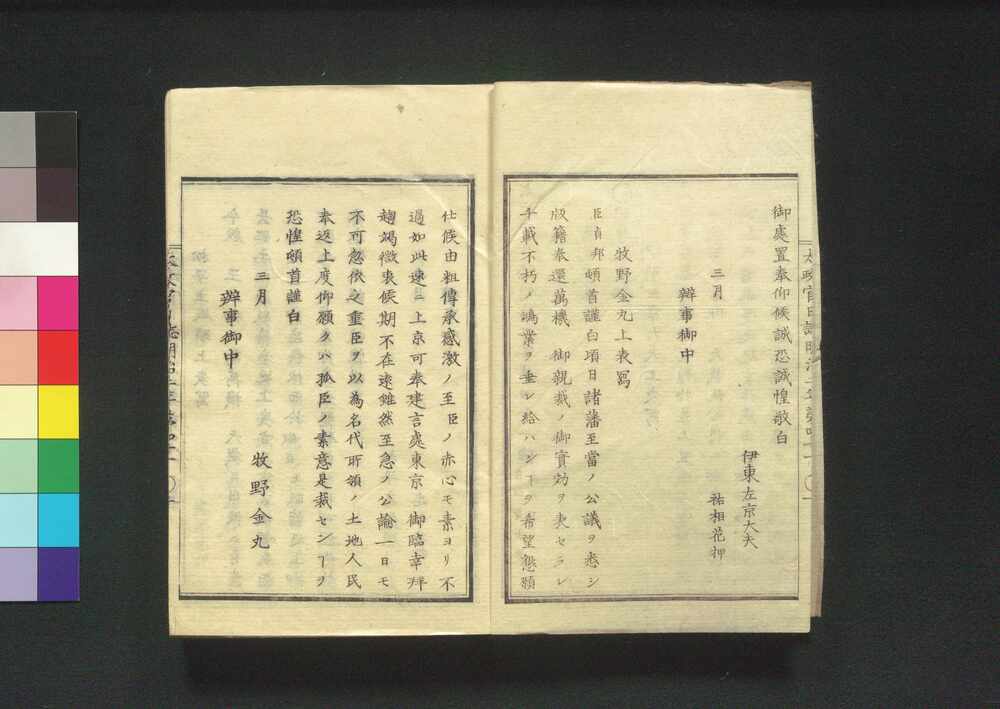 御處置奉仰候誠恐誠惶敬白
伊東左京大夫
三月
祐相花押
辨事御中
牧野金丸上表寫
臣貞邦頓首謹白項日諸藩至當ノ公議ヲ悉シ
版籍奉還萬機　御親裁ノ御實効ヲ表セラレ
千載不朽ノ鴻業ヲ垂レ給ハンヿヲ希望懇願
仕候由粗傳承感激ノ至臣ノ赤心モ素ヨリ不
過如此速ニ上京可奉建言處東京　御臨幸拜
趨竭微衷候期不在遠雖然至急ノ公論一日モ
不可忽依之重臣ヲ以為名代所領ノ土地人民
奉返上度仰願クハ孤臣ノ素意是裁センヿヲ
恐惶頓首謹白
三月
牧野金丸
辨事御中